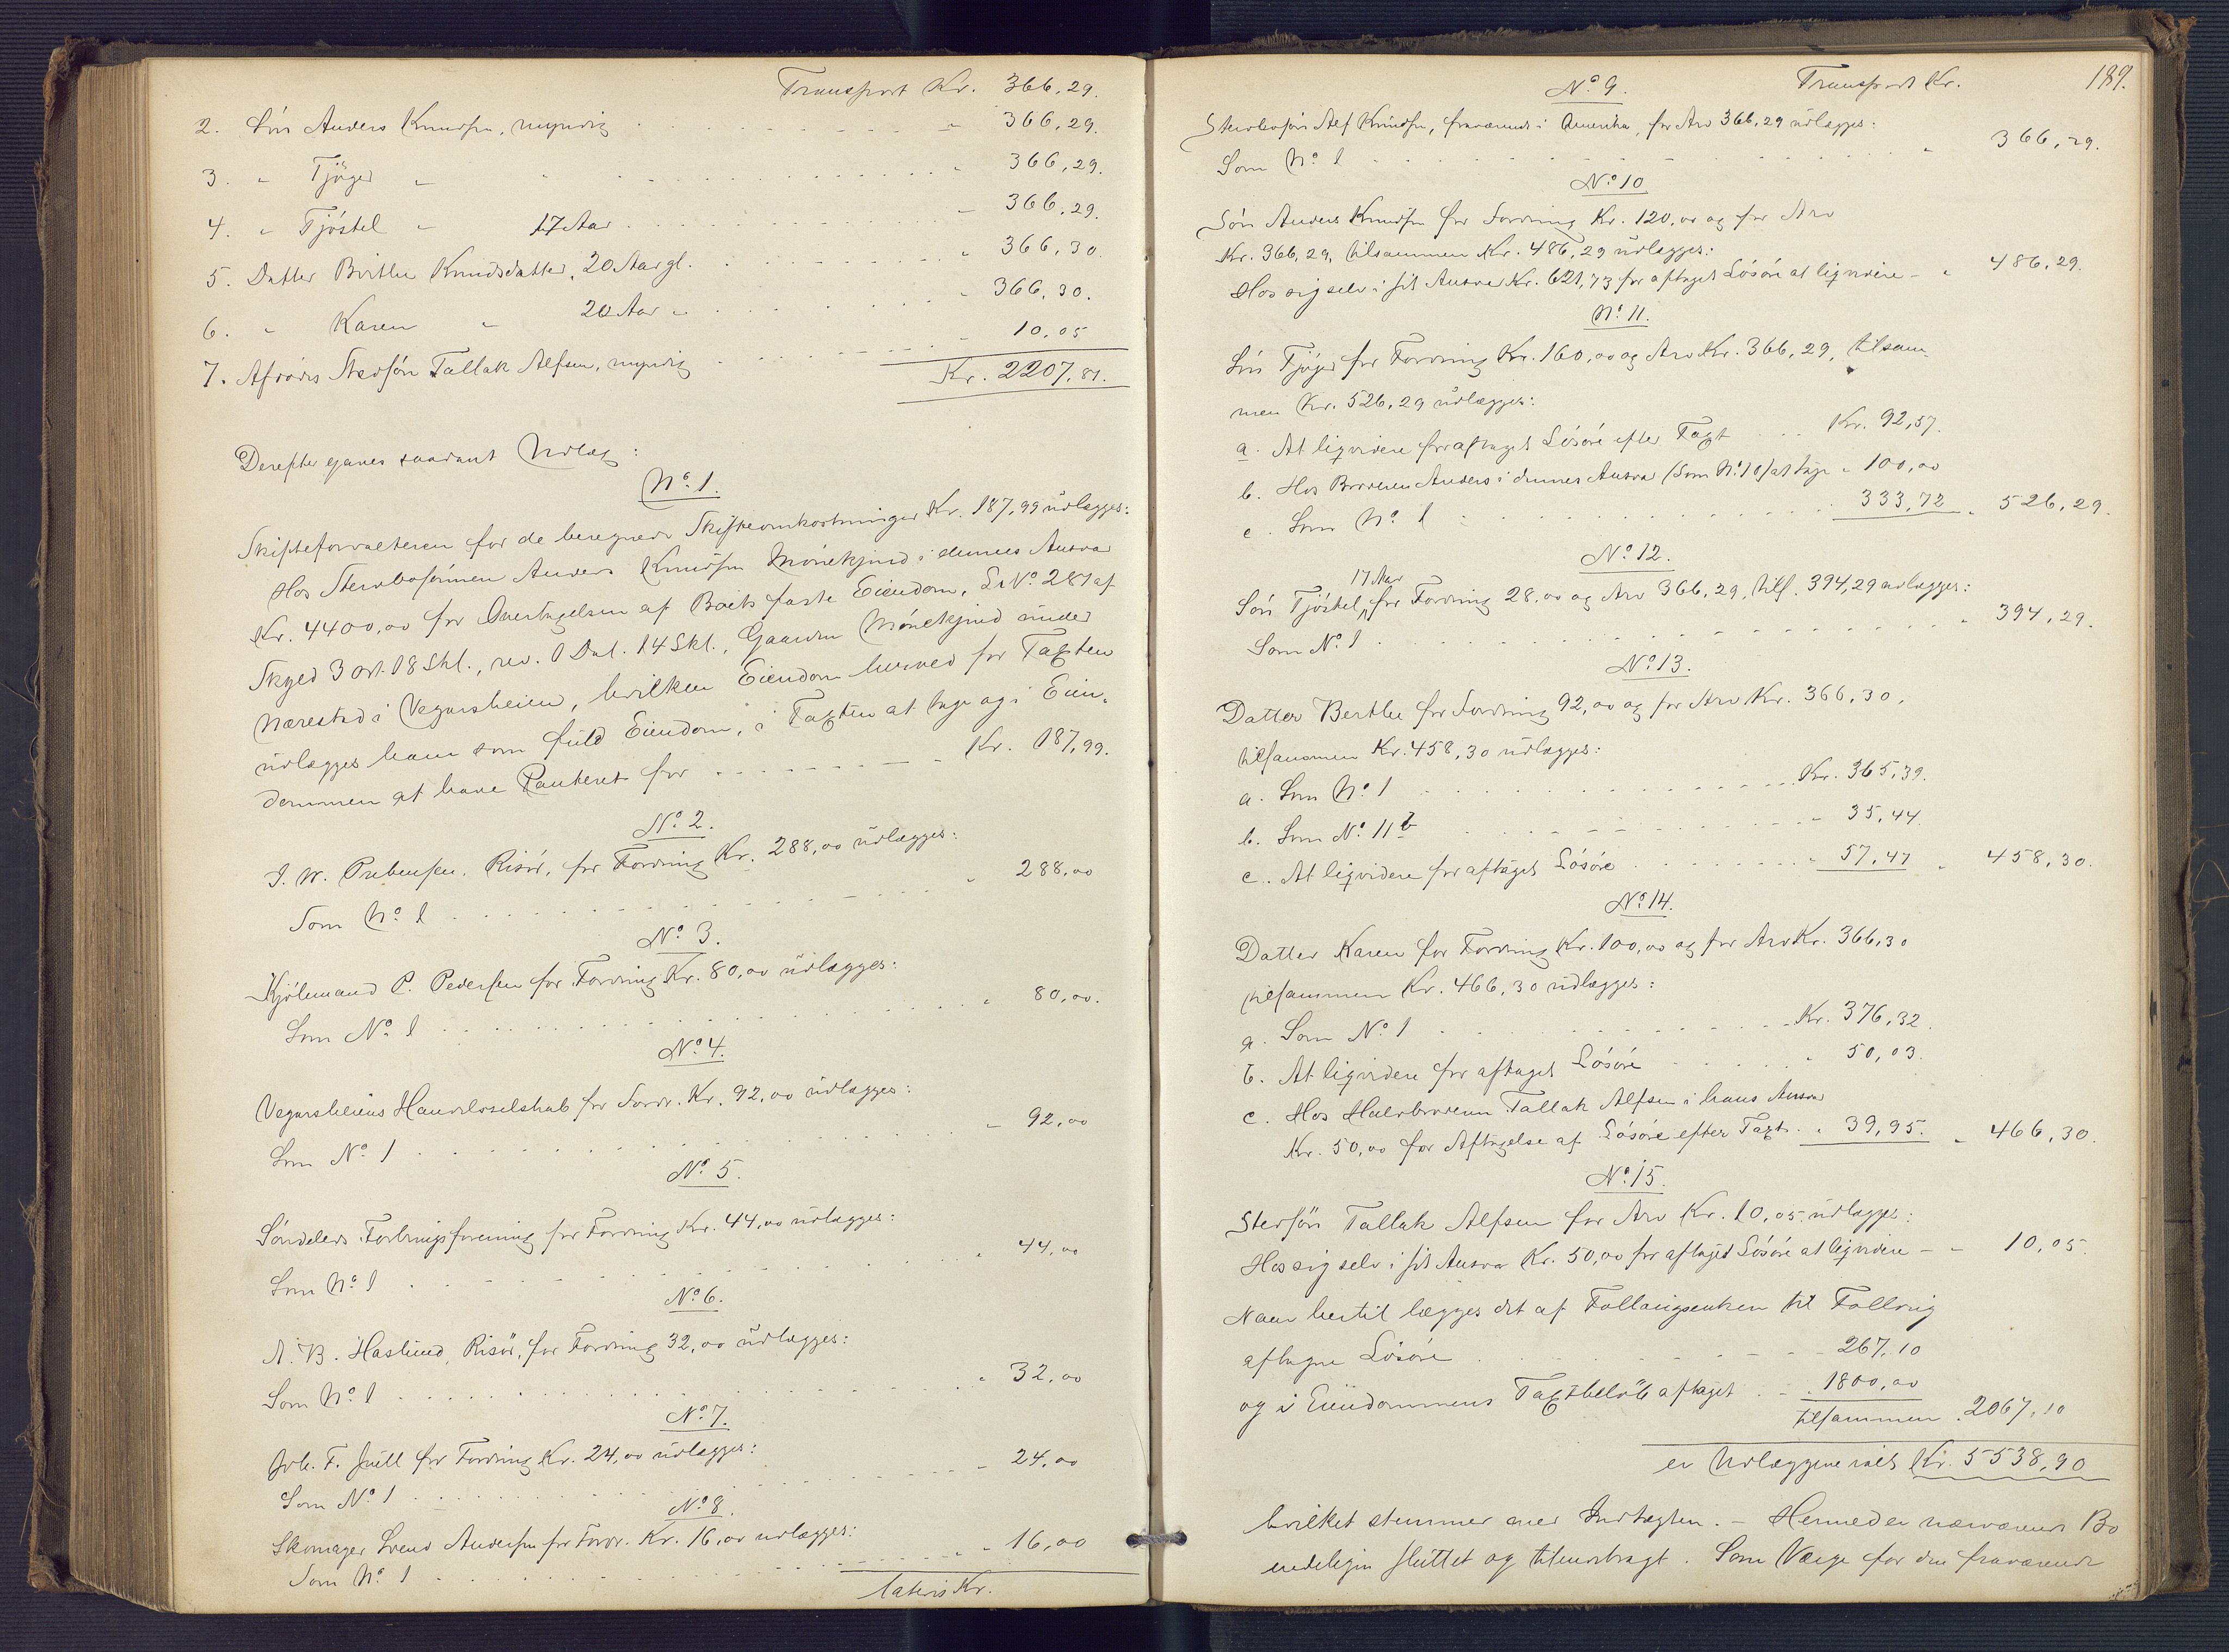 Transport Kr. 366,29.
2. Sön Anders Knudsen, myndig " 366,29.
3. " Tjöger " " " 366,29.
4. " Tjöstel " 17 Aar " 366,29.
5. Datter Birthe Knudsdatter, 20 Aar gl. " 366,30.
6. " Karen " 20 Aar " " 366,30.
7. Afdødes Stedsön Tallak Alfsen, myndig 10,05
Kr. 2207,81.
Derefter gjøres saadant Udlæg:
No. 1.
Skifteforvalteren for de beregnede Skifteomkostninger Kr. 187,99 udlægges:
Hos Stervbosönnen Anders Knudsen Mönekjend i dennes Ansvar
Kr. 4400,00 for Overtagelsen af Boets faste Eiendom, L No. 281 af
Skyld 3 ort 18 Skl., rev. 1 Dal. 14 Skl., Gaarden Mönekjend under
Nærestad i Vegarsheien, hvilken Eiendom herved for Taxten
udlægges ham som fuld Eiendom, i Taxten at tage og i Eien-
dommen at have Panteret for Kr. 187,99.
No. 2.
I. W. Prebensen, Risör, for Fordring Kr. 288,00 udlægges:
Som No. 1 " 288,00
No. 3.
Kjöbmand P. Pedersen for Fordring Kr. 80,00 udlægges:
Som No. 1 " 80,00.
No. 4.
Vegarsheiens Handelsselskab for Fordr. Kr. 92,00 udlægges:
Som No. 1 " 92,00
No. 5.
Söndeleds Forbrugsforening for Fordring Kr. 44,00 udlægges:
Som No. 1 " 44,00
No. 6.
A. B. Haslund, Risör, for Fordring 32,00 udlægges:
Som No. 1 " 32,00
No. 7.
Joh. F. Juell for Fordring Kr. 24,00 udlægges:
Som No. 1 " 24,00
No. 8.
Skomager Svend Andersen for Fordr. Kr. 16,00 udlægges:
Som No. 1 " 16,00
lateris Kr.
189.
No. 9. Transport Kr.
Stervbosön Alf Knudsen, fraværende i Amerika, for Arv 366,29 udlægges:
Som No. 1 " 366,29.
No. 10
Sön Anders Knudsen for Fordring Kr. 120,00 og for Arv
Kr. 366,29, tilsammen Kr. 486,29 udlægges:
Hos sig selv i sit Ansvar Kr. 621,73 for aftaget Lösöre at liqvidere - " 486,29.
No. 11.
Sön Tjöger for Fordring Kr. 160,00 og Arv Kr. 366,29, tilsam-
men Kr. 526,29 udlægges:
a. At liqvidere for aftaget Lösöre efter Taxt Kr. 92,57.
b. Hos Broderen Anders i dennes Ansvar (som No. 10) at tage " 100,00
c. Som No. 1 333,72 " 526,29.
No. 12.
17 Aar
Sön Tjöstel, for Fordring 28,00 og Arv 366,29, tils. 394,29 udlægges:
Som No. 1 " 394,29.
No. 13.
Datter Berthe for Fordring 92,00 og for Arv Kr. 366,30,
tilsammen Kr. 458,30 udlægges:
a. Som No. 1 Kr. 365,39.
b. Som No. 11 b " 35,44.
c. At liqvidere for aftaget Lösöre " 57,47 " 458,30.
No. 14.
Datter Karen for Fordring Kr. 100,00 og for Arv Kr. 366,30
tilsammen Kr. 466,30 udlægges:
a. Som No. 1 Kr. 376,32.
b. At liqvidere for aftaget Lösöre " 50,03.
c. Hos Halvbroderen Tallak Alfsen i hans Ansvar
Kr. 50,00 for Aftagelse af Lösöre efter Taxt " 39,95. " 466,30.
No. 15.
Stedsön Tallak Alfsen for Arv Kr. 10,05 udlægges:
Hos sig selv i sit Ansvar Kr. 50,00 for aftaget Lösöre at liqvidere - " 10,05.
Naar hertil lægges det af Follaugsenken til Follaug
aftagne Lösöre 267,10
og i Eiendommens Taxtbelöb aftaget " 1800,00
tilsammen " 2067,10
er Udlæggene ialt Kr. 5538,90
hvilket stemmer med Indtægten. - Hermed er nærværende Bo
endeligen sluttet og tilendebragt. Som Værge for den fraværende